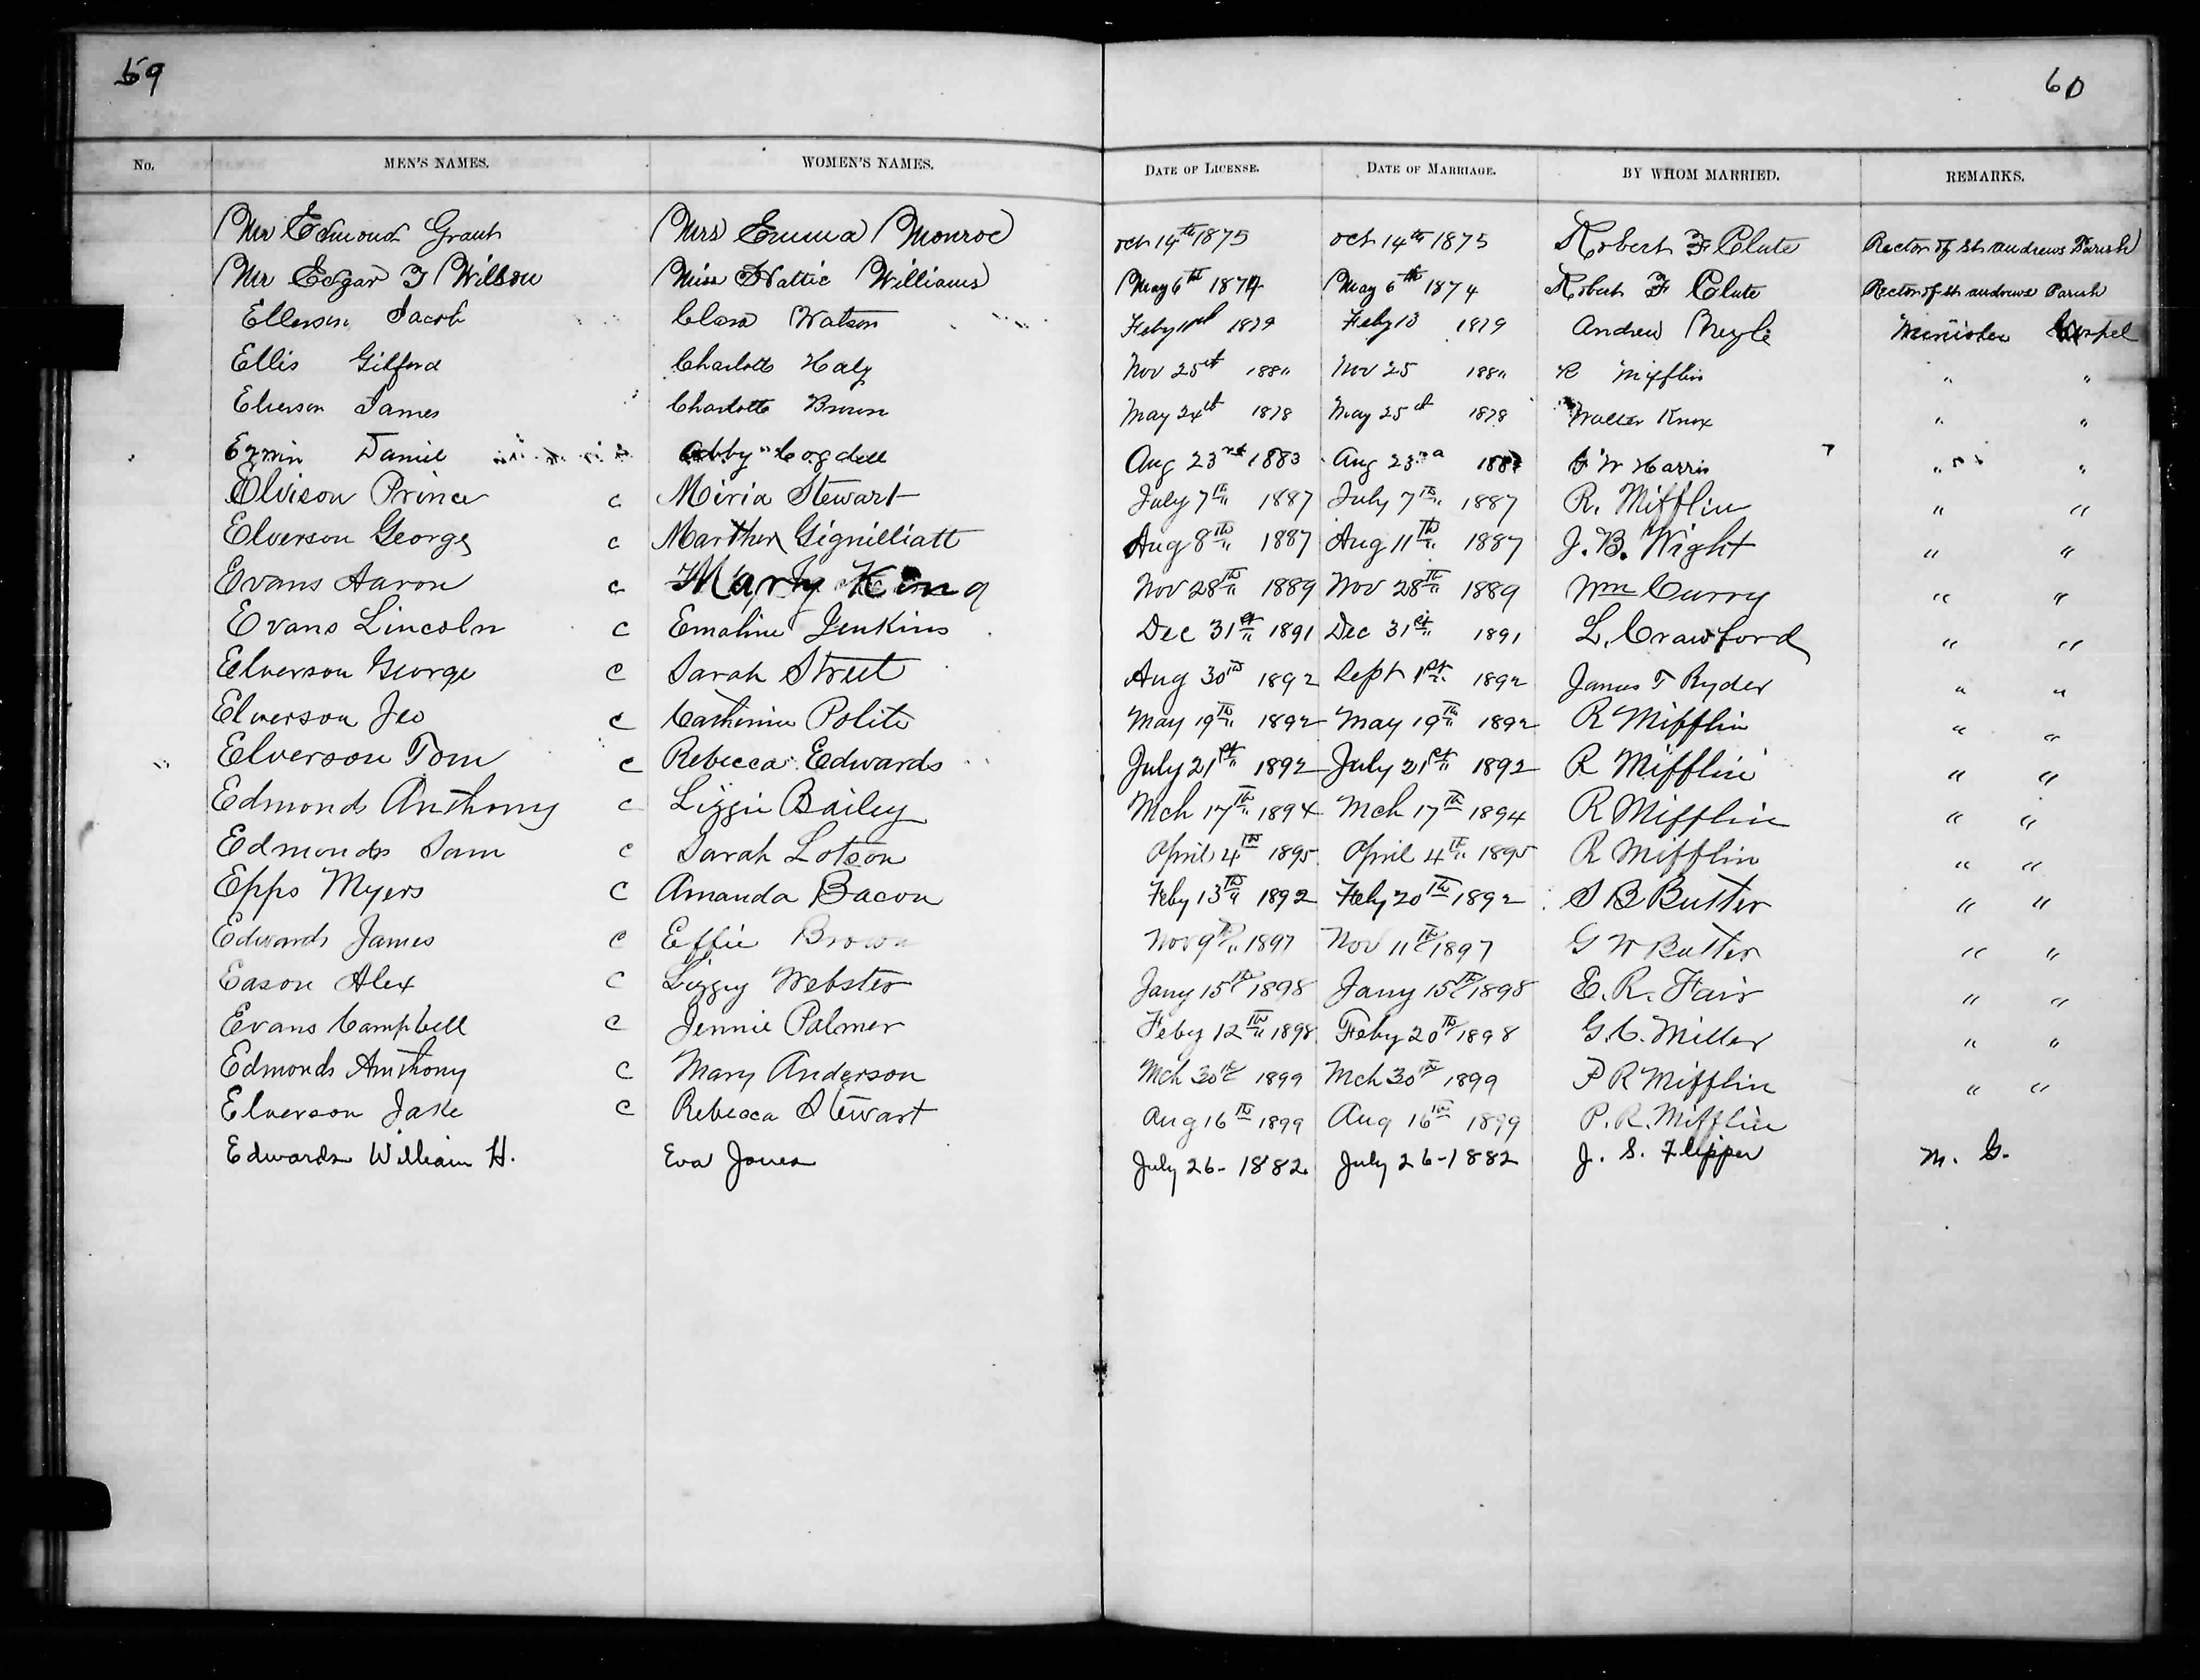 59
60
No. MEN'S NAMES. WOMEN'S NAMES. DATE OF LICENSE. DATE OF MARRIAGE. BY WHOM MARRIED. REMARKS.
Mr Edmond Grant Mrs Emma Monroe Oct 14th 1875 Oct 14th 1875 Robert F Clute Rector of St Andrews Parish
Mr Edgar F Wilson Miss Hattie Williams May 6th 1874 May 6th 1874 Robert F Clute Rector of St Andrews Parish
Ellerson Jacob Clara Watson Feby 1879 Feby 13 1879 Andrew Minister Gospel
Ellis Gilford Charlotte Haly Nov 25st Nov 25 R Mifflin " "
Elverson James Charlotte Brown May 24st 1878 May 25st 1878 Walter Knox " "
Daniel Abby Cogdell Aug 23rd 1883 Aug 23rd W Harris " "
Elvison Prince c Miria Stewart July 7th 1887 July 7th 1887 R. Mifflin " "
Elverson George c Marther Gignilliatt Aug 8th 1887 Aug 11th 1887 J. B. Wight " "
Evans Aaron c Mary King Nov 28th 1889 Nov 28th 1889 Wm Curry " "
Evans Lincoln c Emaline Jenkins Dec 31st 1891 Dec 31st 1891 L. Crawford " "
Elverson George c Sarah Street Aug 30th 1892 Sept 1st 1892 James T Ryder " "
Elverson Jeo c Catherine Polite May 19th 1892 May 19th 1892 R Mifflin " "
Elverson Tom c Rebecca Edwards July 21st 1892 July 21st 1892 R Mifflin " "
Edmonds Anthony c Lizzie Bailey Mch 17th 1894 Mch 17th 1894 R Mifflin " "
Edmonds Sam c Sarah Lotson April 4th 1895 April 4th 1895 R Mifflin " "
Epps Myers c Amanda Bacon Feby 13th 1892 Feby 20th 1892 S B Butter " "
Edwards James c Effie Brown Nov 9th 1897 Nov 11th 1897 G W Butter " "
Eason Alex c Lizzy Webster Jany 15th 1898 Jany 15th 1898 E. R. Fair " "
Evans Campbell c Jennie Palmer Feby 12th 1898 Feby 20th 1898 G. C. Miller " "
Edmonds Anthony c Mary Anderson Mch 30th 1899 Mch 30th 1899 P R Mifflin " "
Elverson Jake c Rebecca Stewart Aug 16th 1899 Aug 16th 1899 P. R. Mifflin
Edwards William H. Eva Jones July 26- 1882 July 26-1882 J. S. Flipper M. G.